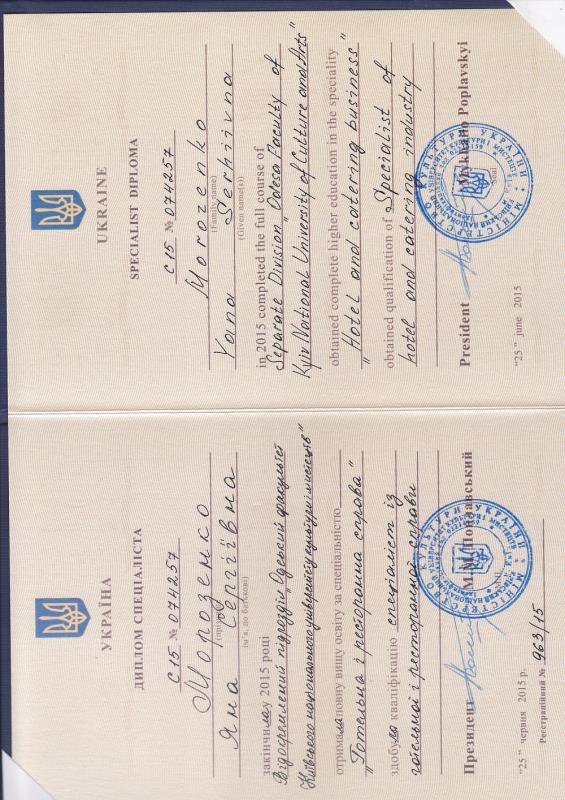 УКРАЇНА
ДИПЛОМ СПЕЦІАЛІСТА
С15 № 074257
Морозенко
(прізвище)
Яна Сергіївна
(ім'я, по батькові)
закінчила у 2015 році
Відокремлений підрозділ "Одеський факультет
Київського національного університету культури і мистецтв"
отримала повну вищу освіту за спеціальністю
"Готельна і ресторанна справа"
здобула кваліфікацію спеціаліст із
готельної і ресторанної справи
Президент М.М. Поплавський
"25" червня 2015 р.
Реєстраційний № 963/15
UKRAINE
SPECIALIST DIPLOMA
С15 № 074257
Morozenko
(Family name)
Yana Serhiivna
(Given name(s))
in 2015 completed the full course of
Separate Division "Odesa Faculty of
Kyiv National University of Culture and Arts"
obtained complete higher education in the speciality
"Hotel and catering business"
obtained qualification of Specialist of
hotel and catering industry
President Mykhailo Poplavskyi
Seal
"25" june 2015